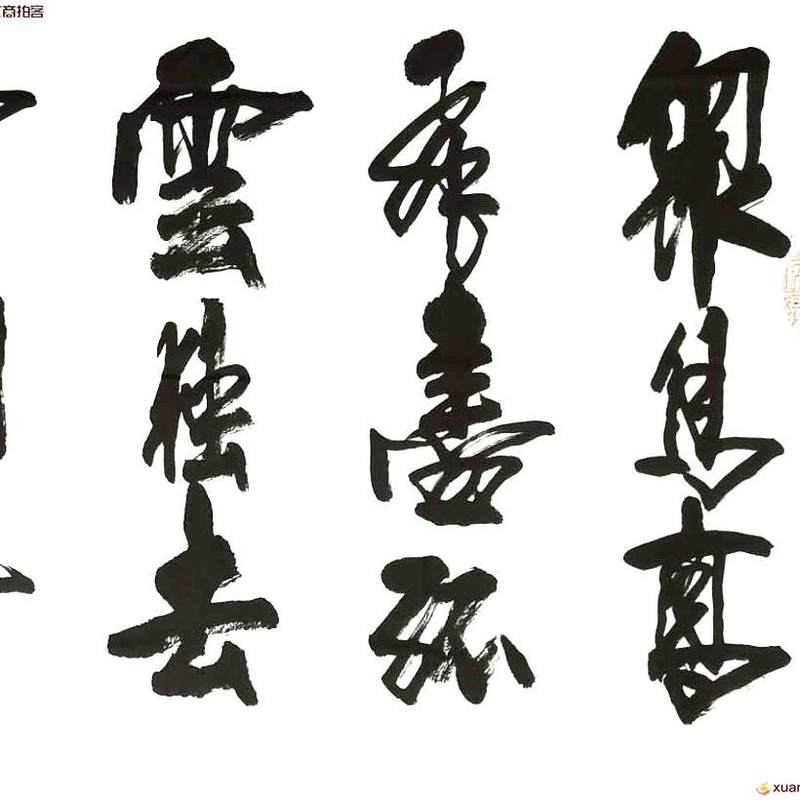 眾鳥高
飛盡孤
雲獨去
商拍客
xuan